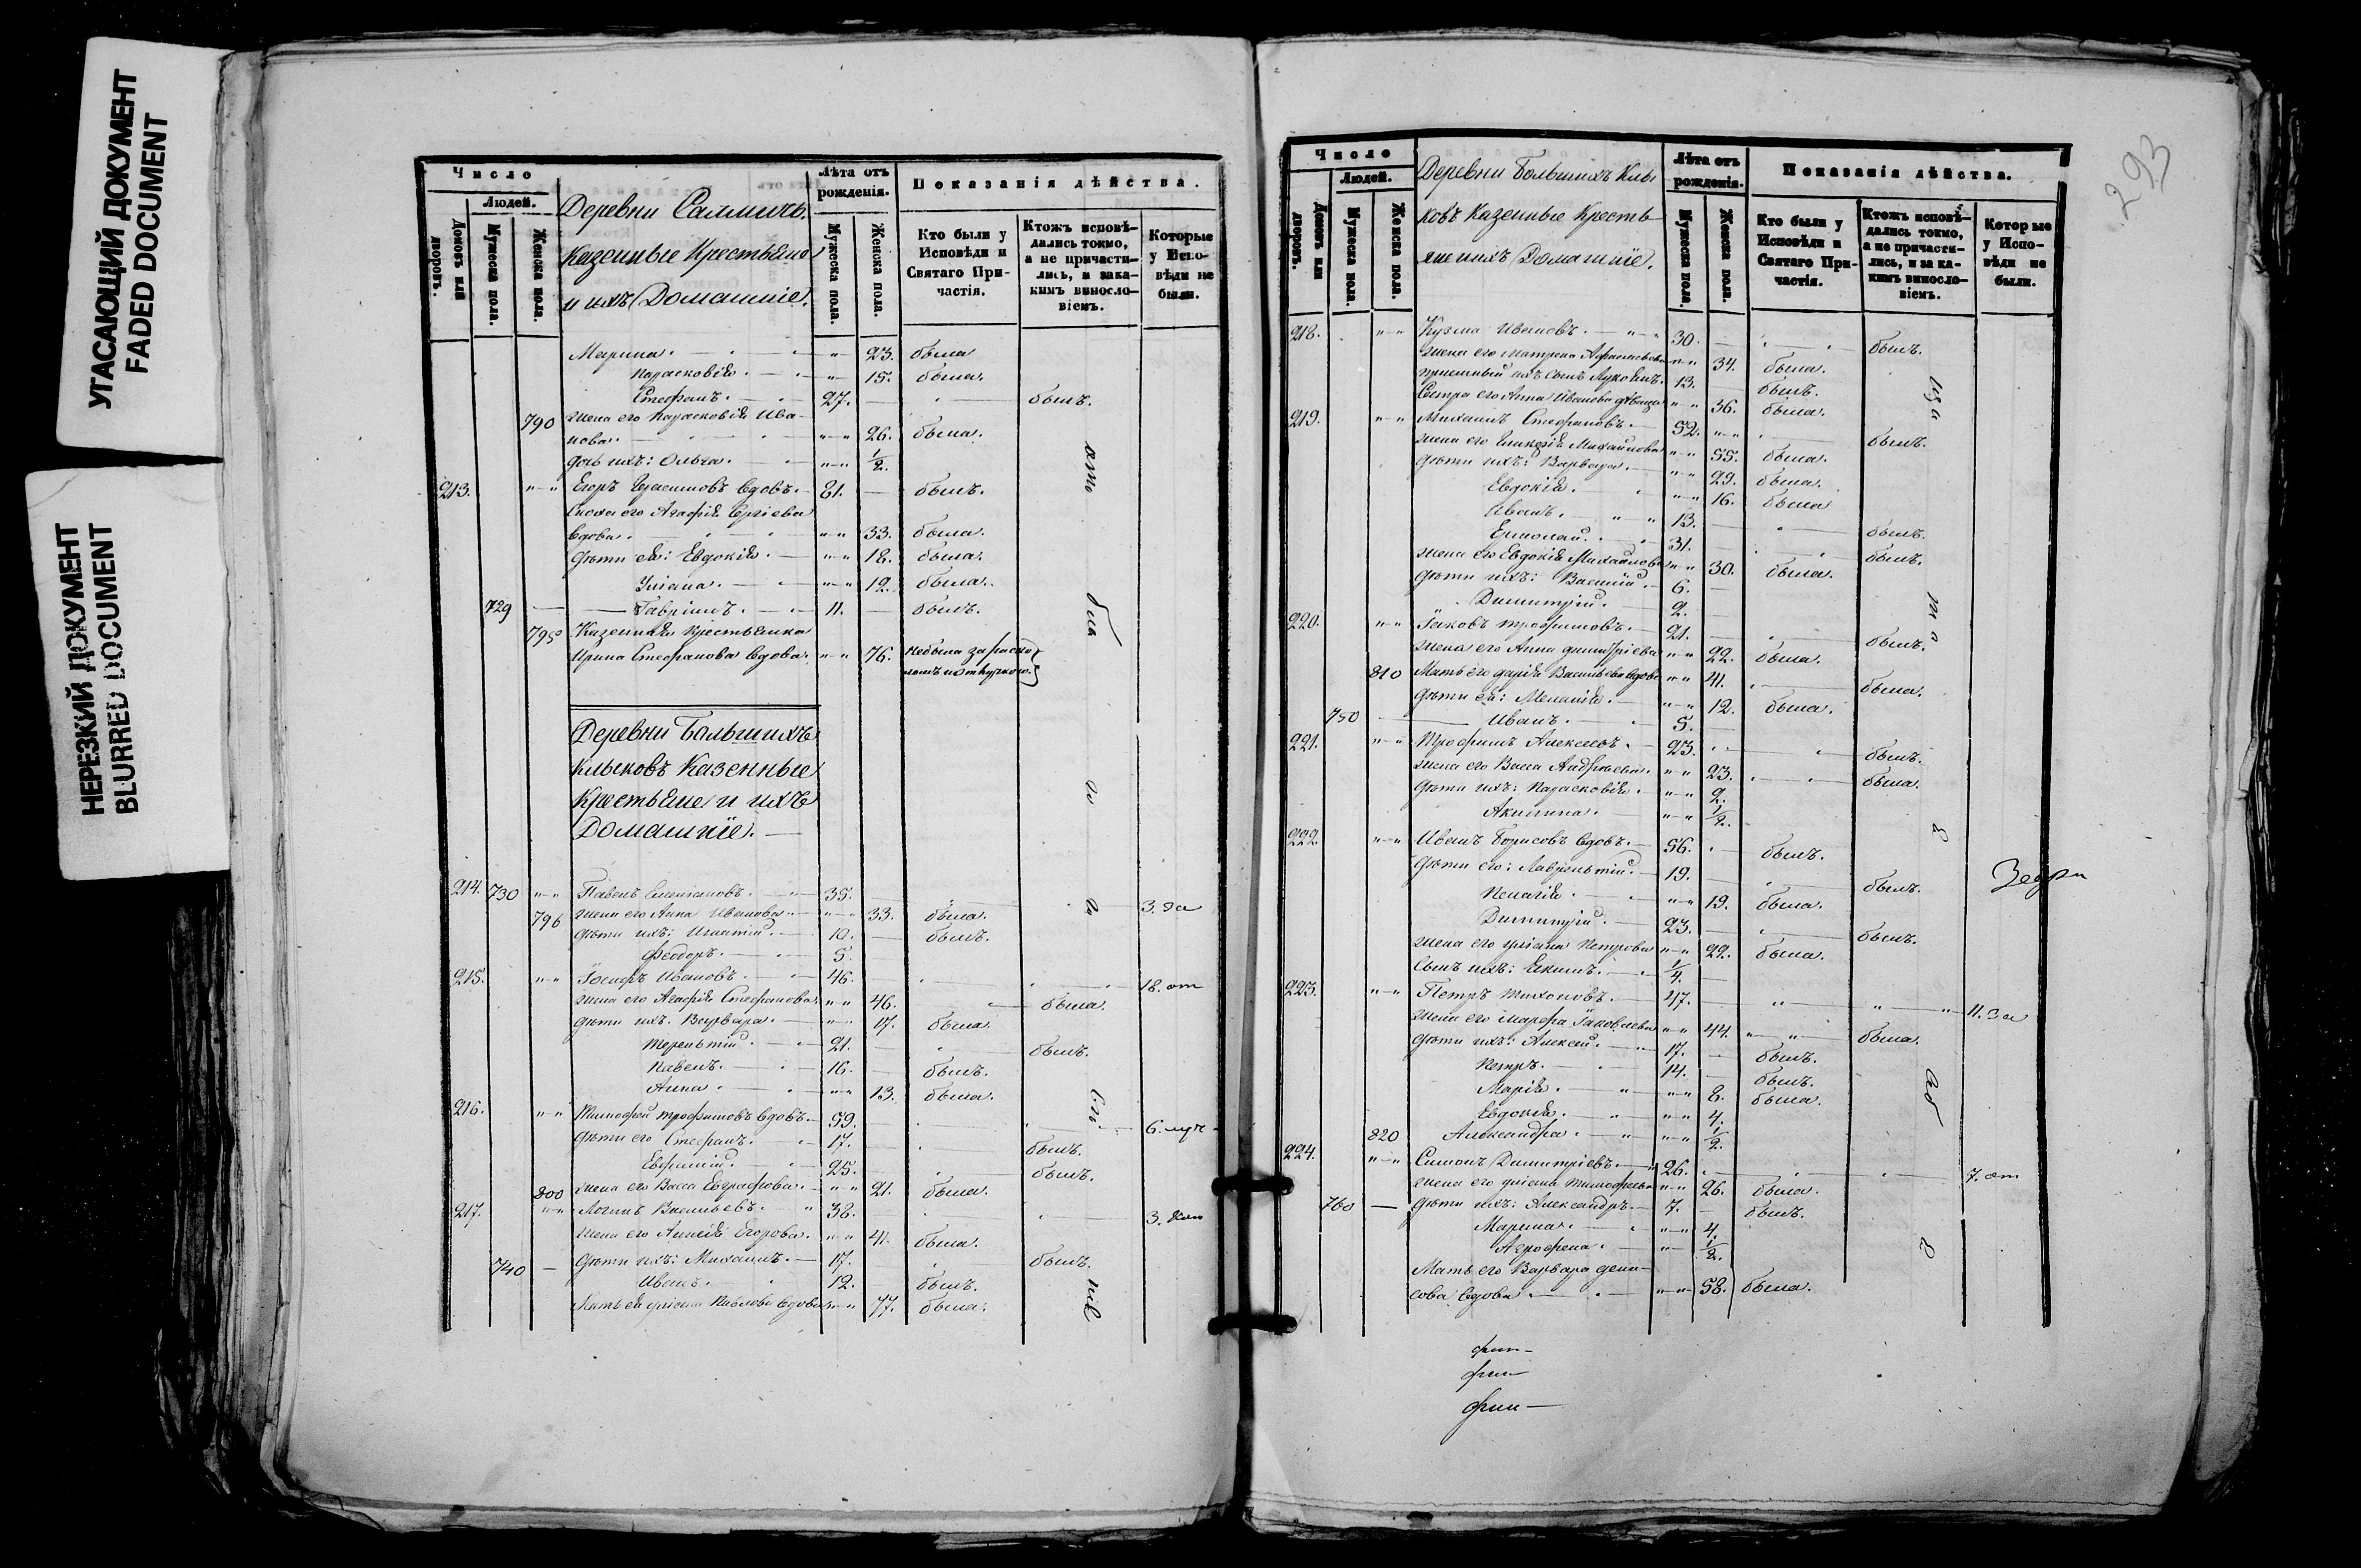 УГАСАЮЩИЙ ДОКУМЕНТ
FADED DOCUMENT
НЕРЕЗКИЙ ДОКУМЕНТ
BLURRED DOCUMENT
Число
Людей.
Домовъ или дворовъ.
Мужеска пола.
Женска пола.
Деревни
Казенные Крестьяне
и ихъ Домашніе.
Лѣта отъ рожденія.
Мужеска пола.
Женска пола.
Показанія дѣйства.
Кто были у Исповѣди и Святаго Причастія.
Ктожъ исповѣдались токмо, а не причастились, и за какимъ винословіемъ.
Которые у Исповѣди не были.
Марина. 23. была
Парасковія. 15. была.
Стефанъ. 27. былъ.
790 жена его Парасковія Ива-
нова. 26. была.
дочь ихъ: Ольга. 1/2.
213. Егоръ Герасимовъ вдовъ. 81. былъ.
Сноха его Агафія Сергіева
вдова. 33. была.
дѣти ея: Евдокія. 18. была.
Уліана. 12. была.
729 Гавріилъ. 11. былъ.
795 Казенная крестьянка
Ирина Стефанова вдова. 76. не была за раско-
Деревни Большихъ
Клыковъ Казенные
Крестьяне и ихъ
Домашніе.
214. 730 Павелъ 35. 3. за
796 жена его Анна Иванова. 33. была.
дѣти ихъ: Игнатій. 10. былъ.
Феодоръ. 5.
215. Іосифъ Ивановъ. 46. 18. от
жена его Агафія Стефанова. 46. была.
дѣти ихъ. Варвара. 17. была.
Терентій. 21. былъ.
Павелъ. 16. былъ.
Анна. 13. была.
216. Тимофей Трофимовъ вдовъ. 59. 6.
дѣти его Стефанъ. 17. былъ.
Евфимій. 25. былъ.
800 жена его Васса Евграфова. 21. была.
217. Логинъ Васильевъ. 38. 3.
жена его Анисія Егорова. 41. была.
740 дѣти ихъ: Михаилъ. 17. былъ.
Иванъ. 12. былъ.
Мать ея Уліана Павлова вдова 77. была.
293
Число
Людей.
Домовъ или дворовъ.
Мужеска пола.
Женска пола.
Деревни Большихъ Клы-
ковъ Казенные Кресть-
яне и ихъ Домашніе.
Лѣта отъ рожденія.
Мужеска пола.
Женска пола.
Показанія дѣйства.
Кто были у Исповѣди и Святаго Причастія.
Ктожъ исповѣдались токмо, а не причастились, и за какимъ винословіемъ.
Которые у Исповѣди не были.
218. Кузма Ивановъ. 30. былъ.
жена его Матрена Афанасьева 34. была.
пріемный ихъ сынъ 13. былъ.
Сестра его Анна Иванова дѣвица 36. была.
219. Михаилъ Стефановъ. 52. былъ.
жена его Гликерія Михайлова 55. была.
дѣти ихъ: Варвара. 29. была.
Евдокія. 16. была
Иванъ. 13. былъ.
Ермолай. 31. былъ.
жена его Евдокія Михайлова 30. была.
дѣти ихъ: Василій. 6.
Димитрій. 2.
220. Іаковъ Трофимовъ. 21. былъ.
жена его Анна Димитріева 22. была.
810 Мать его Дарія Васильева вдова 41. была.
дѣти ея: Меланія. 12. была.
750 Иванъ. 5.
221. Трофимъ Алексеевъ. 23. былъ.
жена его Васса Андреева. 23. была.
дѣти ихъ: Парасковія. 2.
Акилина. 1/2.
222. Иванъ Борисовъ вдовъ. 56. былъ.
дѣти его: Лаврентій. 19. былъ.
Пелагія. 19. была.
Димитрій. 23. былъ.
жена его Уліана Петрова 22. была.
сынъ ихъ: Екимъ. 1/4.
223. Петръ Тихоновъ. 47. 11. за
жена его Марфа Іаковлева 44. была.
дѣти ихъ: Алексей. 17. былъ.
Петръ. 14. былъ.
Марія. 8. была.
Евдокія. 4.
820 Александра. 1/2.
224. Симонъ Димитріевъ. 26. 7. от
жена его Уліана Тимофеева 26. была.
760 дѣти ихъ: Александръ. 7. былъ.
Марина. 4.
Агрофена. 1/2.
Мать его Варвара Дени-
сова вдова. 58. была.